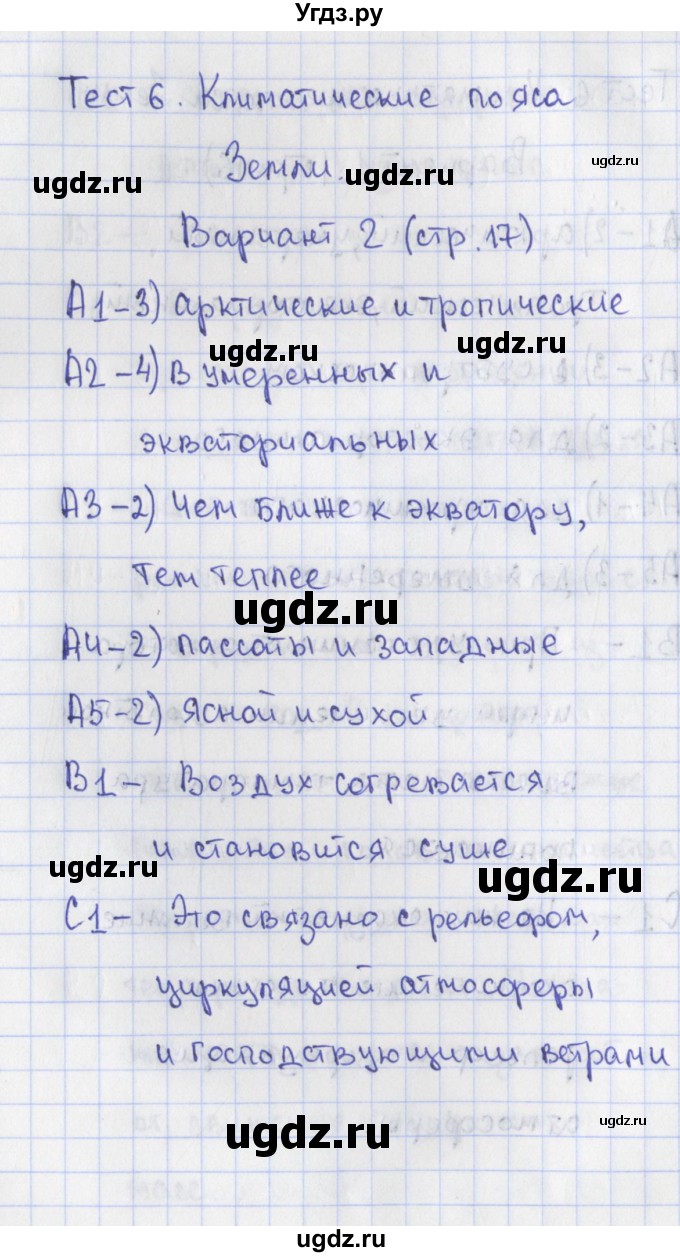 Угдз.ру
Тест 6. Климатические пояса
ugdz.ru
Земли.
ugdz.ru
ugdz.ru
Вариант 2 (стр. 17)
А1-3) арктические и тропические
ugdz.ru
ugdz.ru
А2-4) В умеренных и
экваториальных
А3-2) Чем ближе к экватору,
тем теплее
ugdz.ru
А4-2) пассаты и западные
А5-2) Ясной и сухой
В1- Воздух согревается
и становится суше.
ugdz.ru
ugdz.ru
С1- Это связано с рельефом,
циркуляцией атмосферы
и господствующими ветрами
ugdz.ru
ugdz.ru